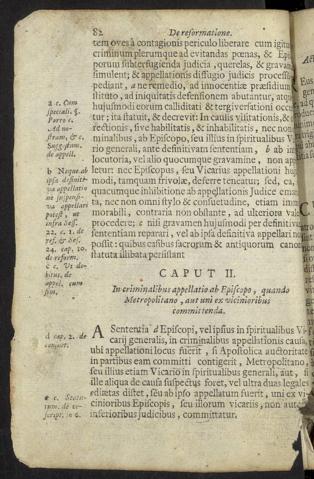 82 De reformatione.
tem oves à contagionis periculo liberare cum igitur
criminum plerumque ad evitandas pœnas, & Epis
porum subterfugienda judicia, querelas, & gravam
simulent; & appellationis diffugio judicis processum
pediant, ane remedio, ad innocentiæ præsidium
stituto, ad iniquitatis defensionem abutantur, atque
hujusmodi eorum calliditati & tergiversationi occur
tur; ita statuit, & decrevit: In causis visitationis, &
rectionis, sive habilitatis, & inhabilitatis, nec non
minalibus, ab Episcopo, seu illius in spiritualibus Vi
rio generali, ante definitivam sententiam, b ab in
locutoria, vel alio quocumque gravamine, non app
letur: nec Episcopus, seu Vicarius appellationi hu
modi, tamquam frivolæ, deferre teneatur; sed, ea,
quacumque inhibitione ab appellationis Judice emana
ta, nec non omni stylo & consuetudine, etiam imm
morabili, contraria non obstante, ad ulteriora vale
procedere; c nisi gravamen hujusmodi per definitivam
sententiam reparari, vel ab ipsa definitiva appellari non
possit: quibus casibus sacrorum & antiquorum canonum
statuta illibata persistant
a c. Cum
speciali. §.
Porro c.
Ad no-
stram, & c.
Suggestum.
de appell.
b Neque ab
ipsa definiti-
va appellatio
ne suspensi-
va appellari
potest, ut
infra Sess.
22. c. 1. de
ref. & Sess.
24. cap. 10.
de reform.
c C. Ut de-
bitus. de
appel. cum
sim.
CAPUT II.
In criminalibus appellatio ab Episcopo, quando
Metropolitano, aut uni ex vicinioribus
committenda.
A Sententia d Episcopi, vel ipsius in spiritualibus Vi-
carii generalis, in criminalibus appellationis causa,
ubi appellationi locus fuerit, si Apostolica auctoritate
in partibus eam committi contigerit, Metropolitano,
seu illius etiam Vicario in spiritualibus generali, aut, si
ille aliqua de causa suspectus foret, vel ultra duas legales
ediætas distet, seu ab ipso appellatum fuerit, uni ex vi-
cinioribus Episcopis, seu illorum vicariis, non autem
inferioribus judicibus, committatur.
d cap. 2. de
e c. Statu-
tum. de re-
script. in 6.